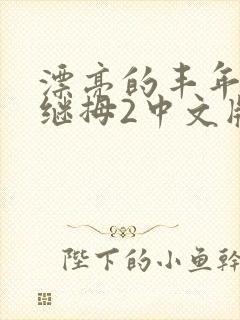 漂亮的丰年
继拇2中文版
陛下的小鱼干